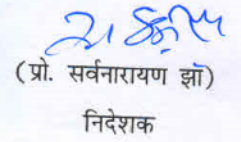 (प्रो. सर्वनारायण झॉ)
निदेशक